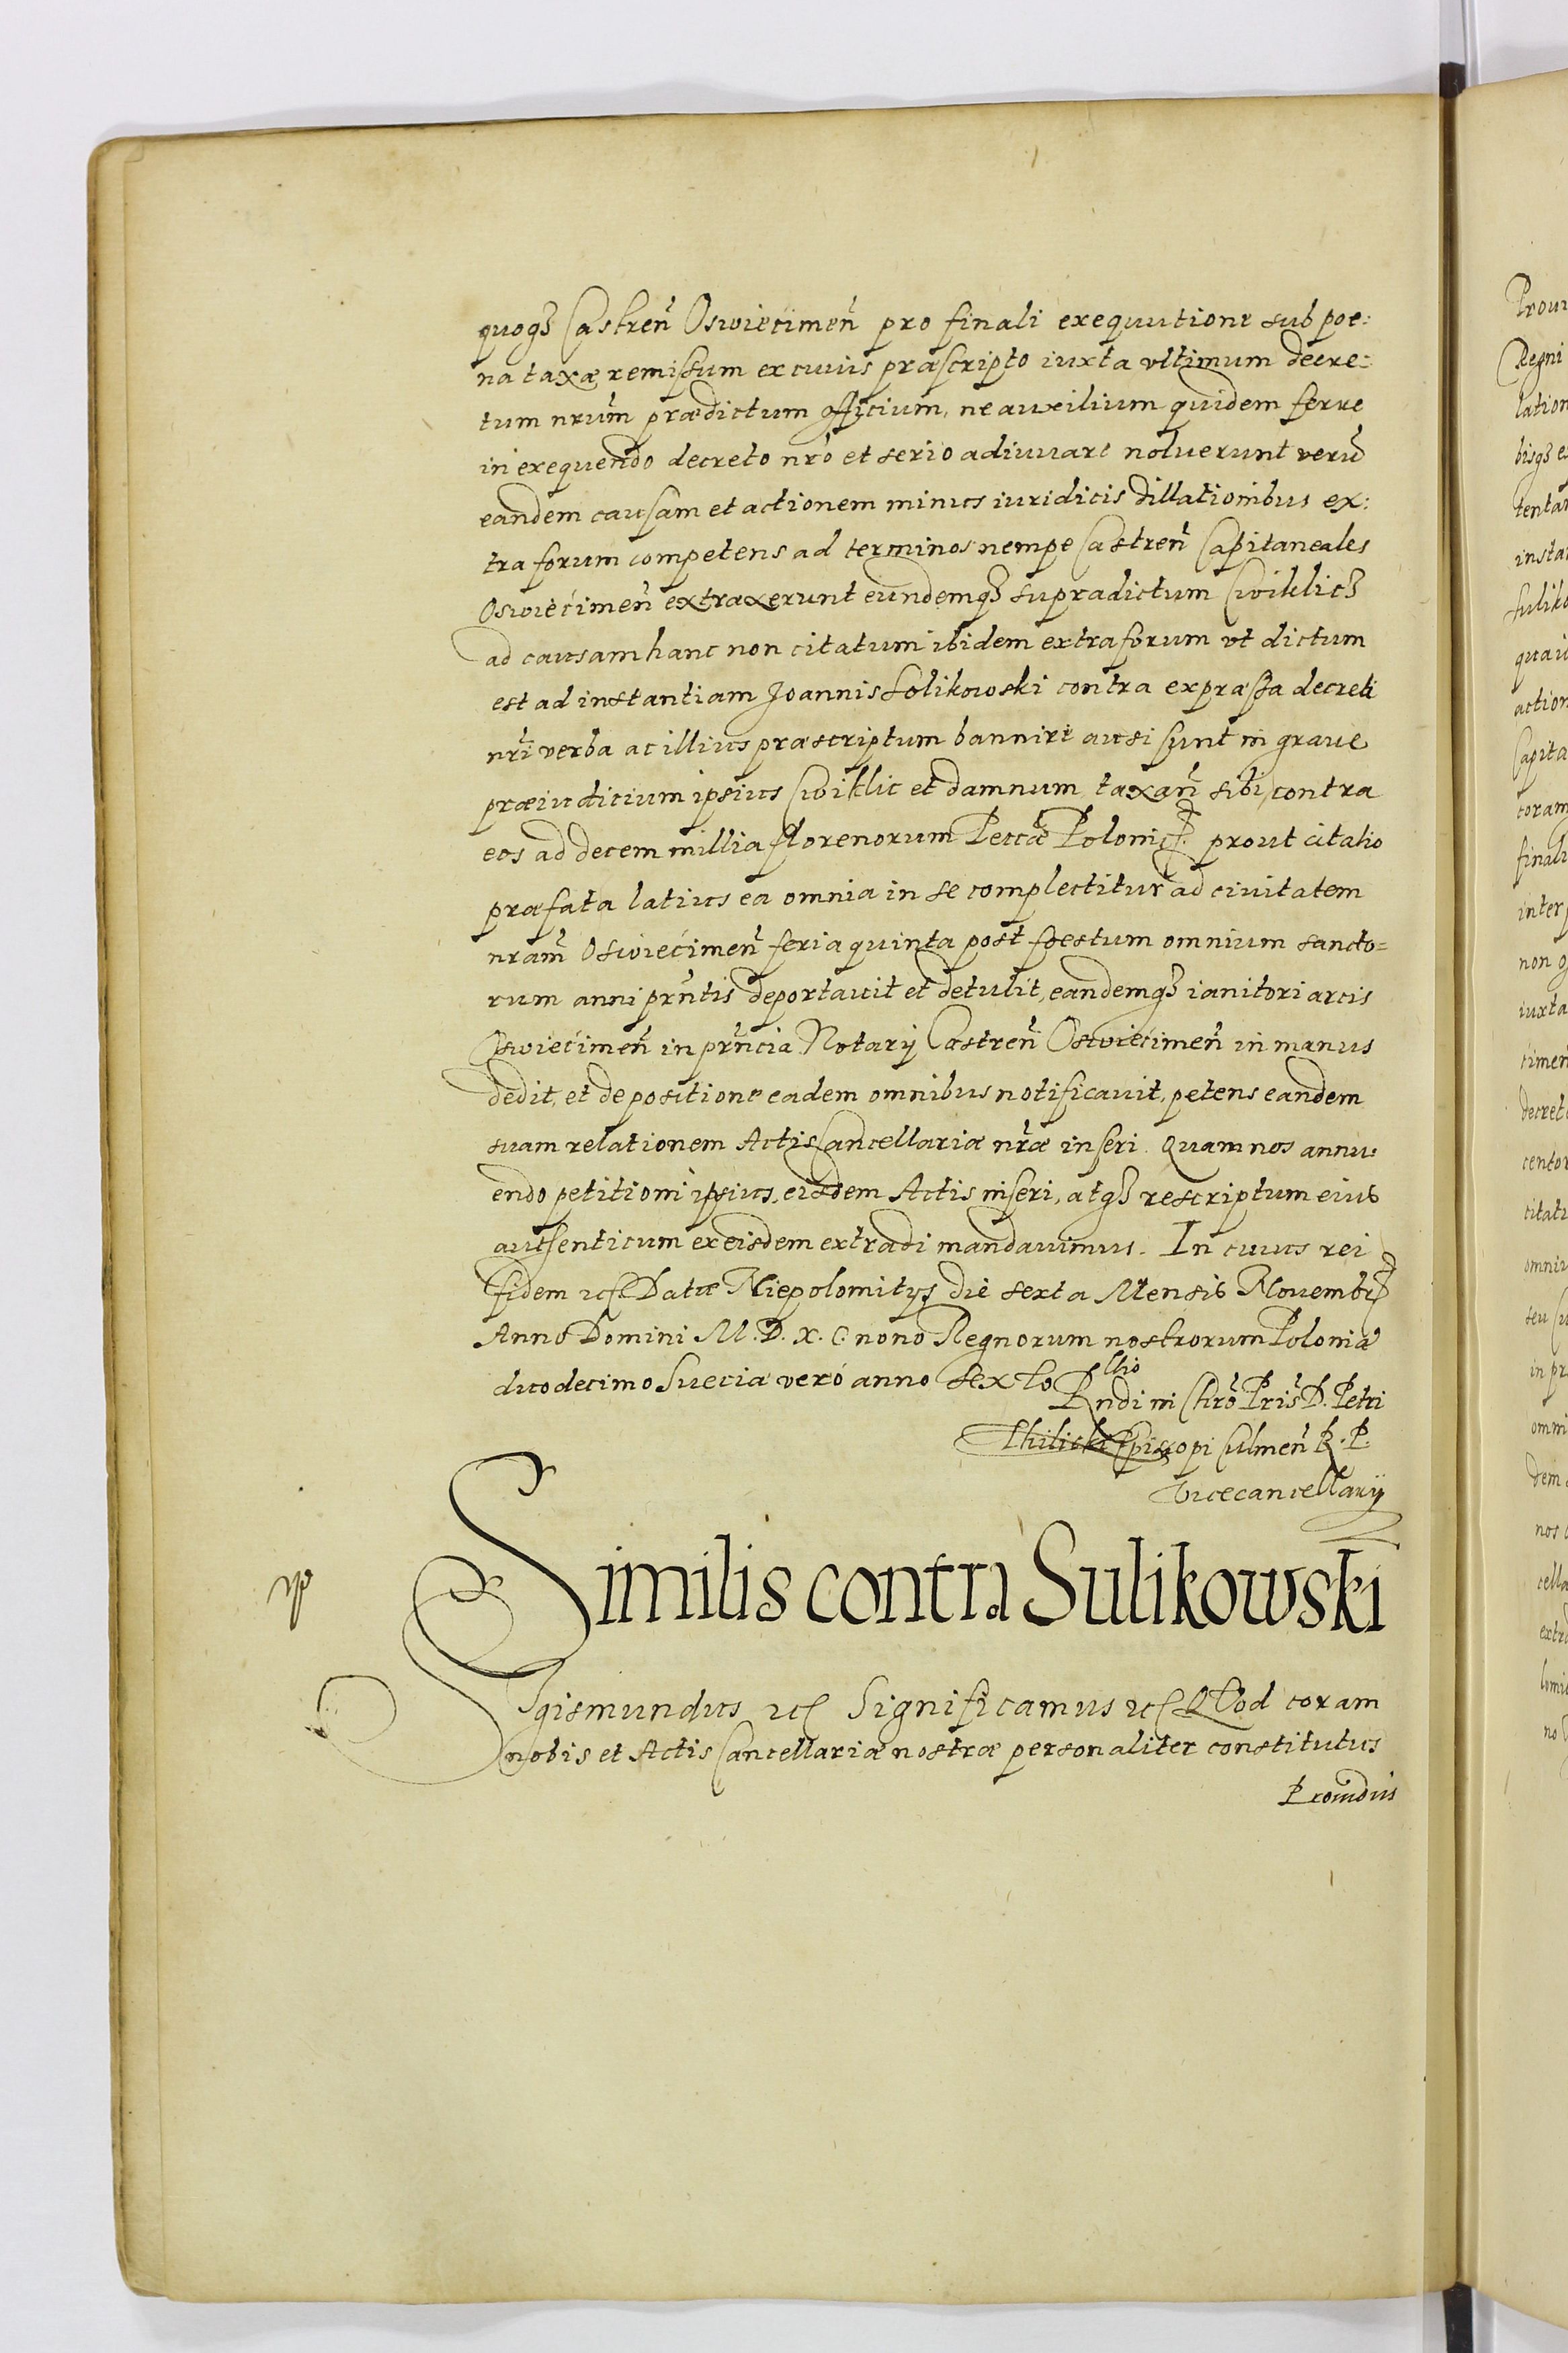 quoqȝ Castreñ Oswiecimeñ pro finali exequutione sub poe:
na taxæ remissum ex cuius præscripto iuxta vltimum decre:
tum nr̃um prædictum officium, ne auxilium quidem ferre
in exequendo decreto nr̃o et serio adiuuare noluerunt verũ
eandem causam et actionem minus iuridicis dillationibus ex:
tra forum competens ad terminos nempe Castreñ Capitaneales
Oswiecimeñ extraxerunt eundemqȝ supradictum Cwiklicȝ
ad causam hanc non citatum ibidem extra forum vt dictum
est ad instantiam Joannis Solikowski contra expræssa decreti
nr̃i verba ac illius præscriptum bannire ausi sunt in graue
præiudicium ipsius Cwiklic et damnum taxañ sibi contra
eos ad decem millia florenorum Peccæ Polonic. prout citatio
præfata latius ea omnia in se complectitur ad ciuitatem
nr̃am Oswiecimeñ feria quinta post foestum omnium sancto=
rum anni prñtis deportauit et detulit, eandemqȝ ianitori arcis
Oswiecimeñ in prñcia Notarij Castreñ Oswiecimeñ in manus
dedit, et de positione eadem omnibus notificauit, petens eandem
suam relationem Actis Cancellariæ nr̃æ inseri. Quam nos annu:
endo petitioni ipsius, eisdem Actis inseri, atqȝ rescriptum eius
autsenticum ex eisdem extradi mandauimus. In cuius rei
fidem etc Datæ Niepolomitijs die sexta Mensis Nouembr
Anno Domini M.D.X.C. nono Regnorum nostrorum Poloniæ
duodecimo Sueciæ vero anno sexto
Rllio
Rndi in Chro Pris D. Petri
Thilicki Episcopi Culmeñ R. P.
Vicecancellarij
Similis contra Sulikowski
Sigismundus etc Significamus etc Quod coram
nobis et Actis Cancellariæ nostræ personaliter constitutus
Prouidus